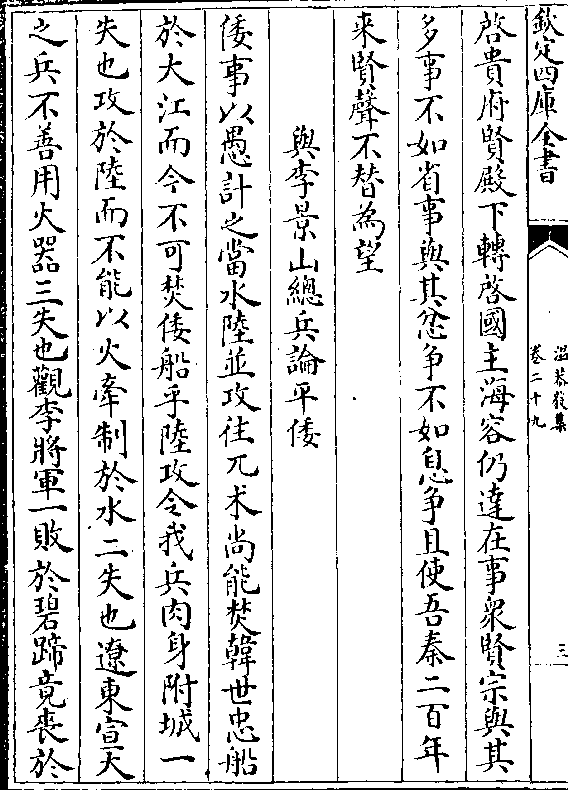 欽定四庫全書
溫恭毅集
卷二十九
三
啓貴府賢殿下轉啓國主海容仍達在事衆賢宗與其
多事不如省事與其忿争不如息争且使吾秦二百年
来賢聲不替為望
與李景山總兵論平倭
倭事以愚計之當水陸並攻往兀术尚能焚韓世忠船
於大江而今不可焚倭船乎陸攻令我兵肉身附城一
失也攻於陸而不能以火牽制於水二失也遼東宣大
之兵不善用火器三失也觀李將軍一敗於碧蹄竟丧於